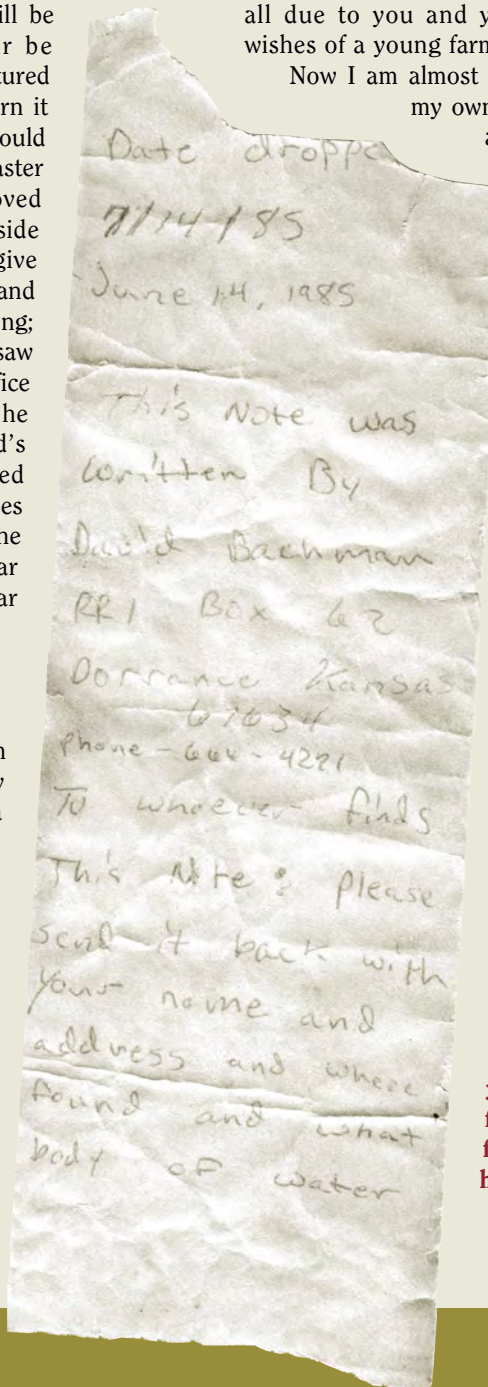 ill be
r be
tured
rn it
ould
aster
oved
side
give
and
ng;
saw
fice
he
d's
ed
es
ne
ar
ar
all due to you and y
wishes of a young farm
Now I am almost
my own
a
Date droppe
7/14/85
June 14, 1985
This Note was
written By
David Bachman
RR1 Box 62
Dorrance Kansas
67634
Phone -
To whoever finds
This Note: please
send it back with
your name and
address and where
found and what
body of water
f
f
h